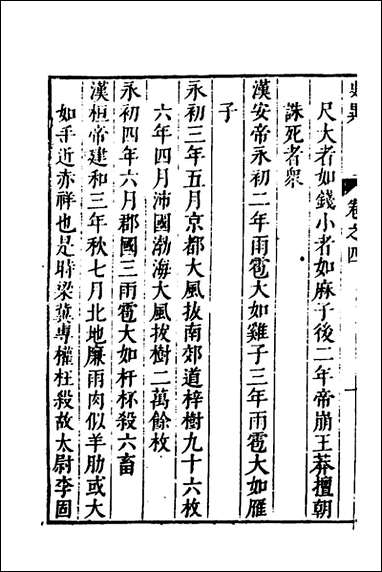 卷之四
尺大者如錢小者如麻子後二年帝崩王莽擅朝
誅死者衆
漢安帝永初二年雨雹大如雞子三年雨雹大如雁
子
永初三年五月京都大風拔南郊道梓樹九十六枚
六年四月沛國渤海大風拔樹二萬餘枚
永初四年六月郡國三雨雹大如杅杯殺六畜
漢桓帝建和三年秋七月北地廉雨肉似羊肋或大
如手近赤祥也是時梁冀專權枉殺故太尉李固